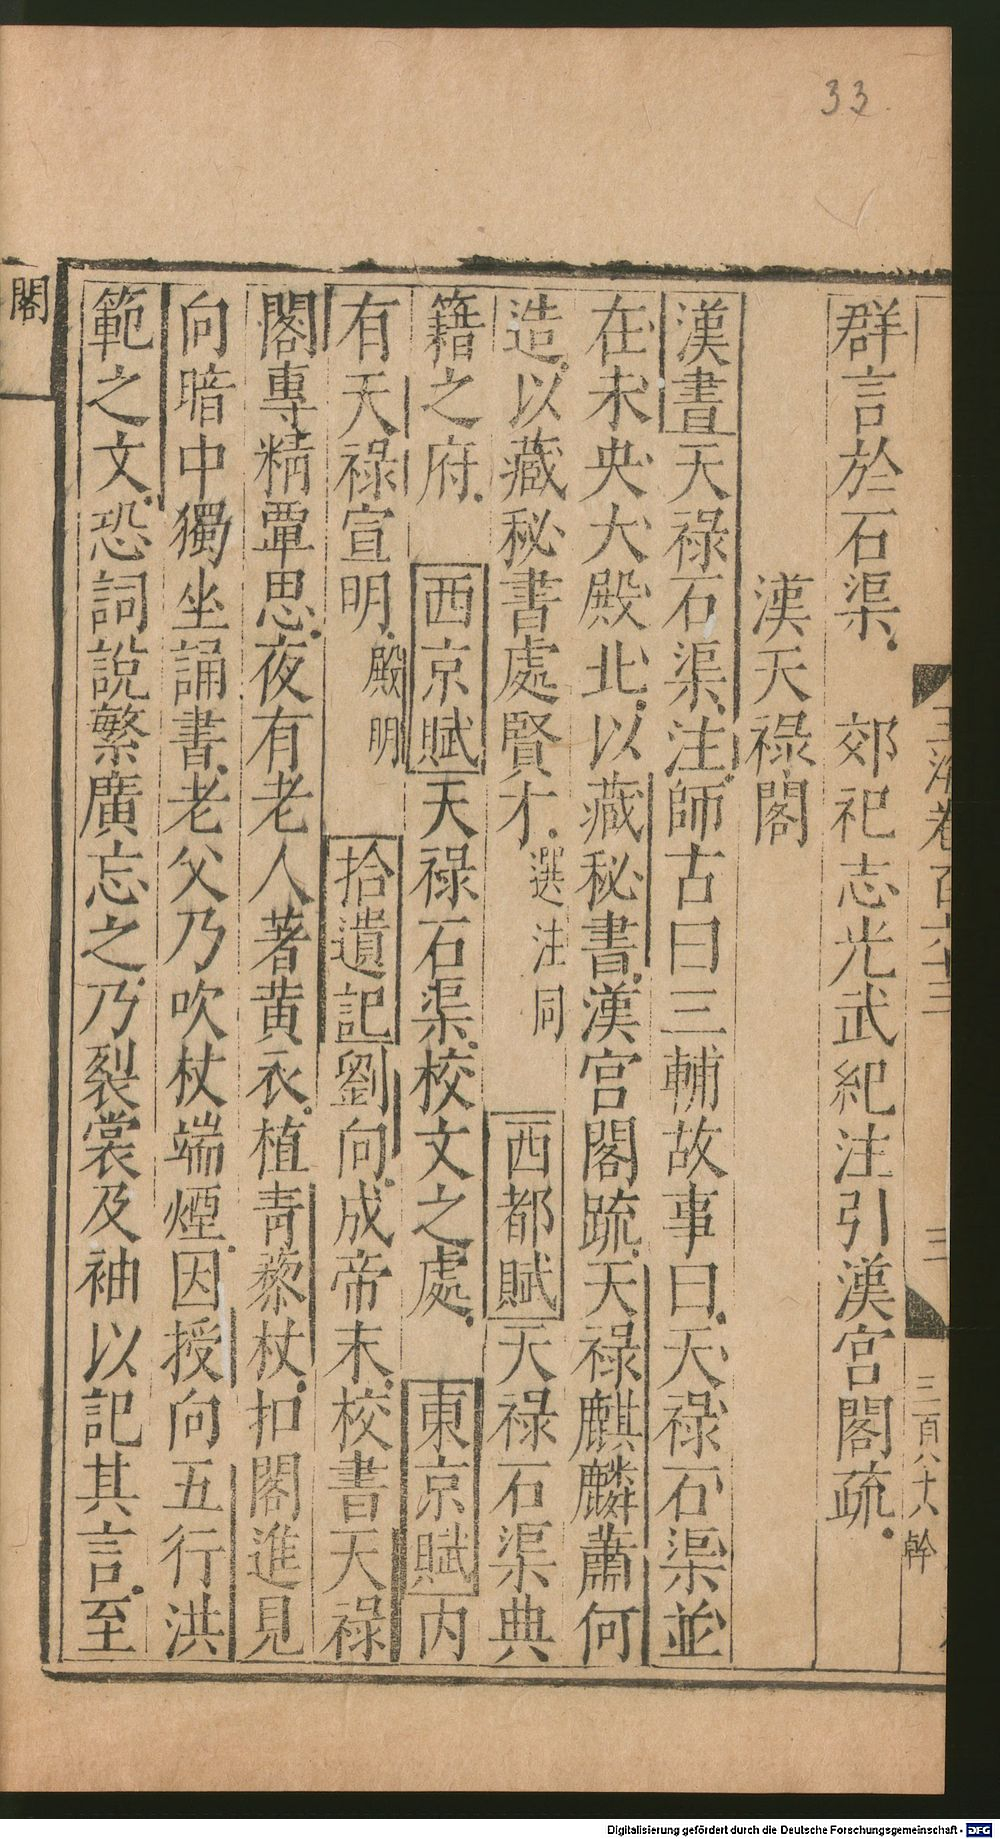 33
玉海卷百六十三
三
三百八十八
幹
群言於石渠 郊祀志光武紀注引漢宮閣疏
漢天祿閣
漢書天祿石渠注師古曰三輔故事曰天祿石渠並
在未央大殿北以藏秘書漢宮閣疏天祿麒麟蕭何
造以藏秘書處賢才選注同 西都賦天祿石渠典
籍之府 西京賦天祿石渠校文之處 東京賦内
有天祿宣明殿明 拾遺記劉向成帝末校書天祿
閣專精覃思夜有老人著黄衣植靑藜杖扣閣進見
向暗中獨坐誦書老父乃吹杖端煙因授向五行洪
範之文恐詞說繁廣忘之乃裂裳及袖以記其言至
閣
Digitalisierung gefördert durch die Deutsche Forschungsgemeinschaft - DFG